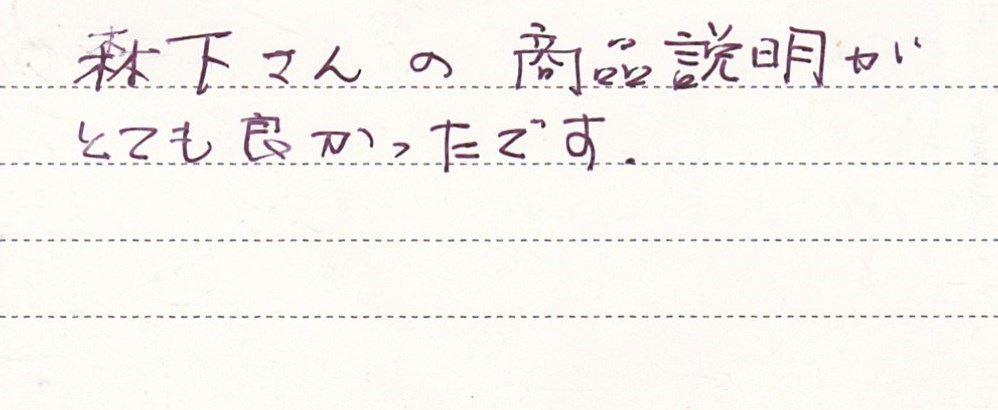 森下さんの商品説明が
とても良かったです.